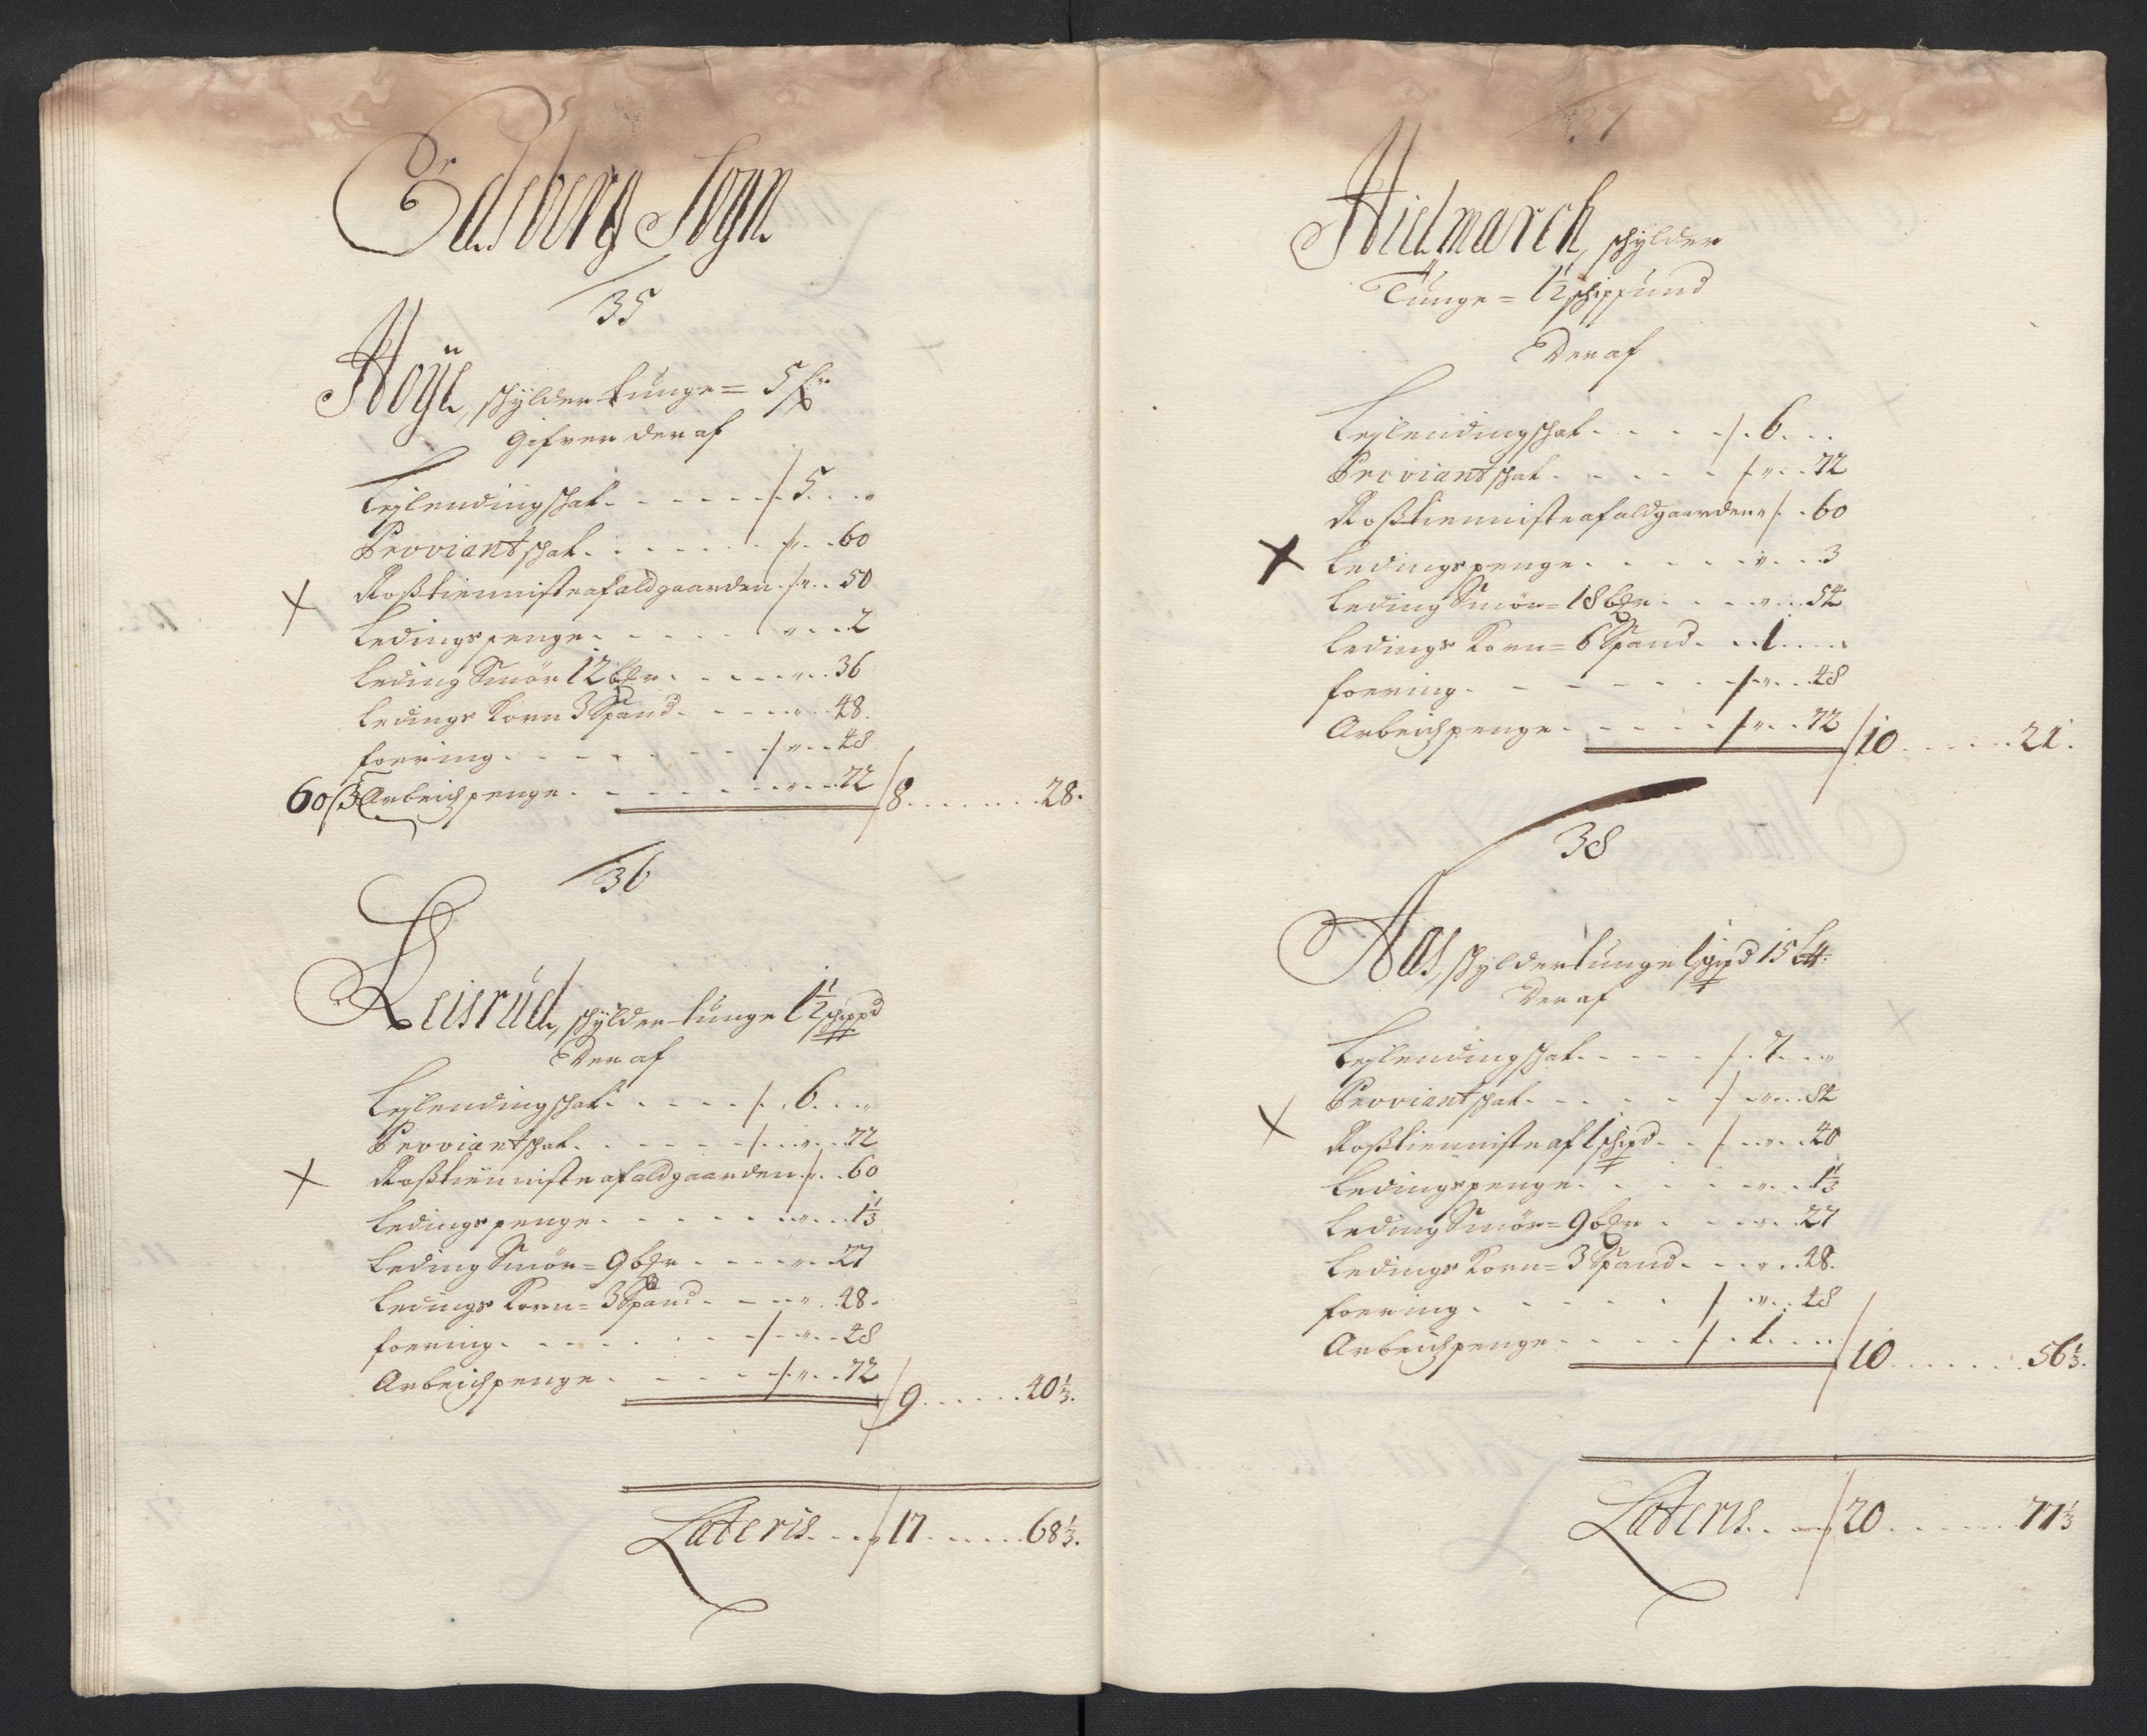 Edsberg Sogn
35
Höÿe, schylder tunge = 5
Gifver der af
Leÿlendingschat. - - - - - 5. . . "
Proviantschat. . . . . . . ". . 60
Rosstienniste af aldgaarden. ". . 50
Ledingspenge. - - - - ". . . 2
Leding Smör 12 bßr. - - - - ". . 36
Ledings Korn 3 Spand. - - - - " . . 48.
foering. - - - - - - ". . . 48
60 ß Arbeidspenge. - - - - - - ". . . 72 8. . . . . . . 28.
36
Reisrüd, schylder tunge 1½ schippd
Der af
Leÿlendingschat. . . . . . 6. . . "
Proviantschat. . . . . . . ". . 72
Rosstienniste af aldgaarden. ". . 60
Ledingspenge. - - - - - ". . . 1⅓
Leding Smör = 9 bßr - - - - ". . 27
Ledings Korn = 3 Spand. - - - " . . 48.
foering. - - - - - - ". . . 48
Arbeidspenge. - - - - - ". . . 72 9. . . . . . 40⅓.
Lateris. . . . 17. . . . . . 68⅓.
37
Hielmarch, schylder
Tunge = 1½ schippund
Der af
Leÿlendingschat. - - - - . 6. . .
Proviantschat. - - - - - ". . . 72
Rosstienniste af aldgaarden " . 60
Ledingspenge. - - - - - ". . . 3
Leding Smör = 18 bßr. - - - ". . . 54
Ledings Korn = 6 Spand. . . 1. . . .
foering. - - - - - - ". . . 48
Arbeidspenge. - - - - - ". . . 72 10. . . . . . 21.
38
Aas, schylder tunge 1 schipd 15 L℔.
Der af
Leÿlendingschat. - - - - . 7. . . "
Proviantschat. - - - - - ". . . 84
Rosstienniste af 1 schipd. . . ". . 40
Ledingspenge. - - - - - ". . . 1⅓
Leding Smör = 9 bßr - - - ". . 27
Ledings Korn = 3 Spand. - - ". . 48.
foering. - - - - - - ". . . 48
Arbeidspenge. - - - - . 1. . . . 10. . . . . . . 56⅓.
Lateris. . . . 20. . . . . . . 77⅓